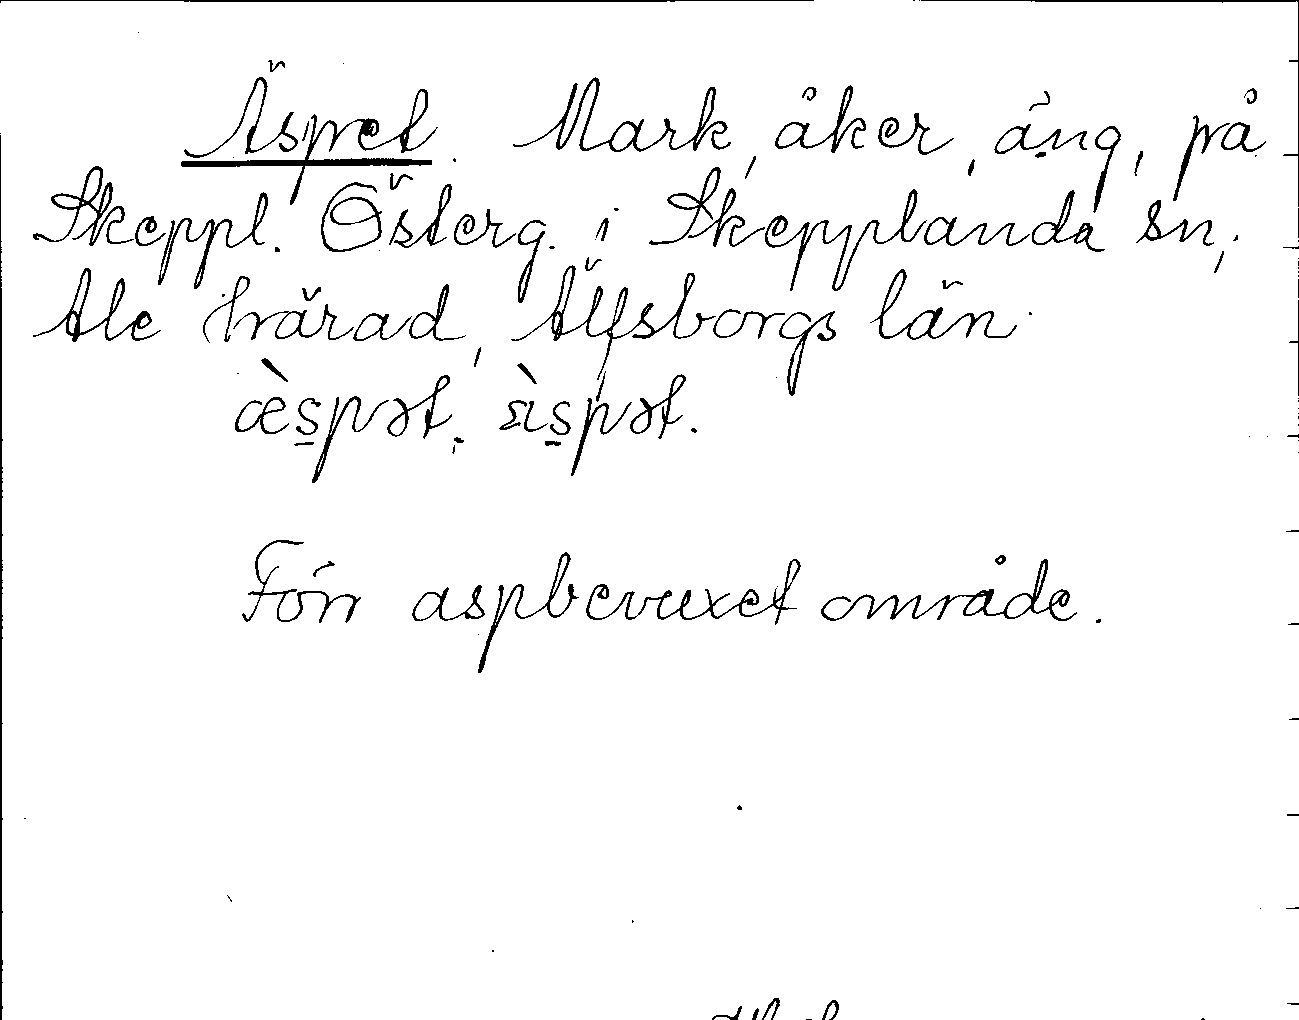 Äspet. Mark, åker, äng, på
Skeppl. Österg. i Skepplanda sn,
Ale härad, Älfsborgs län.
æ̀s̠pət,
Förr aspbevuxet område.